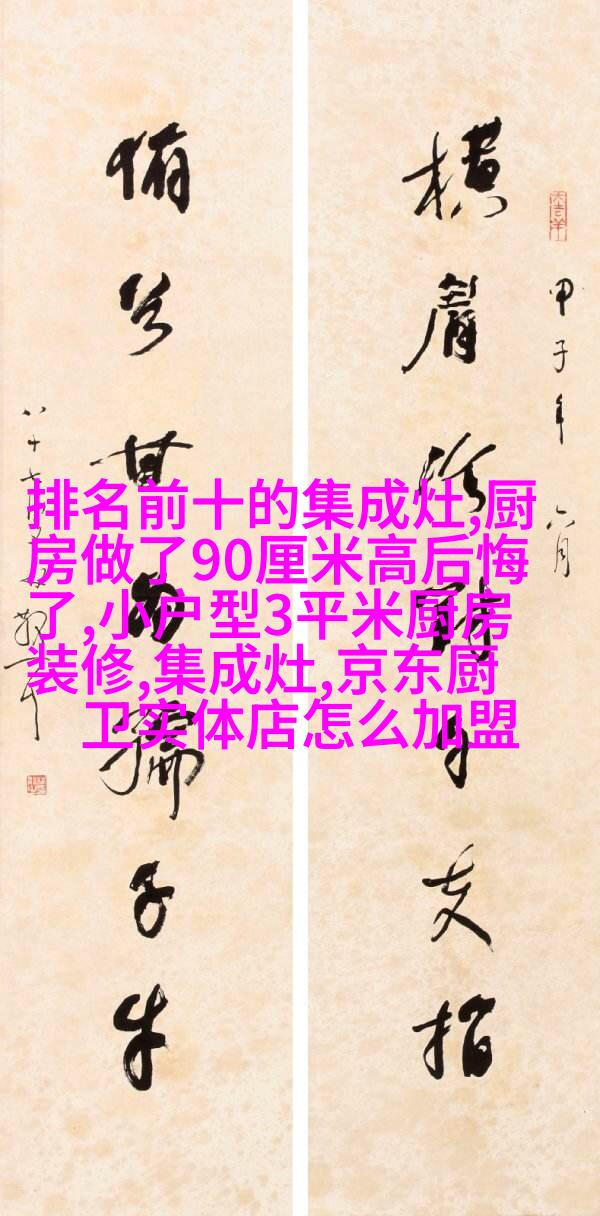 甲子年六月
横眉冷對千夫指
俯首甘为孺子牛
排名前十的集成灶,厨
房做了90厘米高后悔
了,小户型3平米厨房
装修,集成灶,京东厨
卫实体店怎么加盟